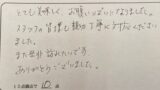 とても美味しく、お腹いっぱいになりました。
スタッフの皆様も親切丁寧に対応ください
ました。
また是非訪れたいです。
ありがとうございました。